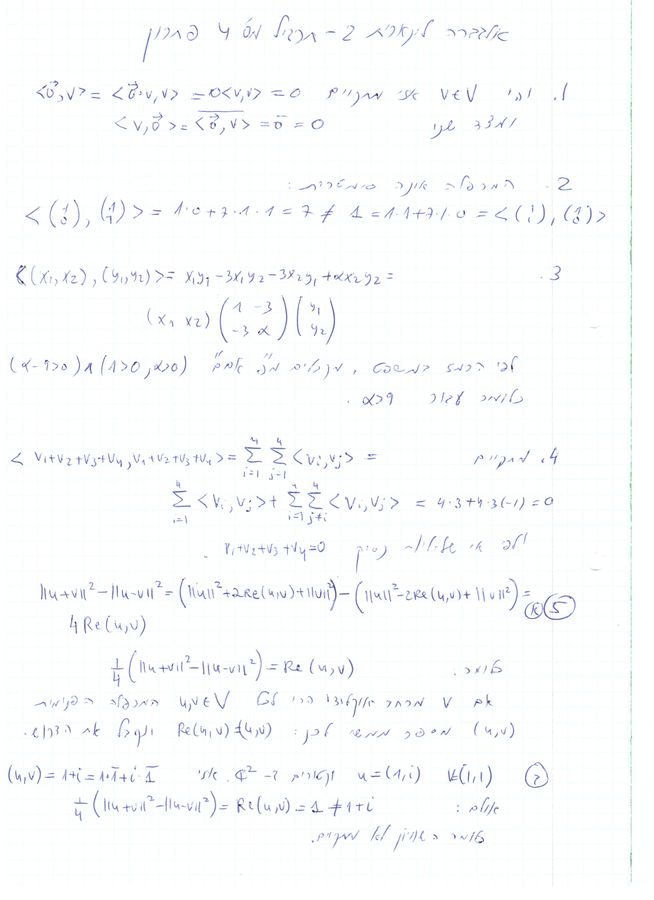 אלגברה לינארית 2 - תרגיל מס 4 פתרון
1. יהי v∈V אזי מתקיים <0⃗,v> = <0⃗·v,v> = 0<v,v> = 0
ומצד שני <v,0⃗> = \overline{<0⃗,v>} = \overline{0} = 0
2. המכפלה אינה סימטרית:
<(1 0), (1 1)> = 1·0+7·1·1 = 7 ≠ 1 = 1·1+7·1·0 = <(1 1), (1 0)>
3. <(x₁,x₂),(y₁,y₂)> = x₁y₁-3x₁y₂-3x₂y₁+αx₂y₂ =
(x₁ x₂) (1 -3 / -3 α) (y₁ / y₂)
לפי הרמז במשפט, מקבלים מ"פ אמ"מ (α-9>0)∧(1>0,α>0)
כלומר עבור α>9.
4. מתקיים <v₁+v₂+v₃+v₄,v₁+v₂+v₃+v₄> = ∑_{i=1}^{4} ∑_{j=1}^{4} <vᵢ,vⱼ> =
∑_{i=1}^{4} <vᵢ,vⱼ> + ∑_{i=1}^{4} ∑_{j≠i}^{4} <vᵢ,vⱼ> = 4·3+4·3(-1) = 0
ולפי אי שליליות נסיק v₁+v₂+v₃+v₄=0.
5 א ||u+v||²-||u-v||² = (||u||²+2Re(u,v)+||v||²)-(||u||²-2Re(u,v)+||v||²) =
4Re(u,v)
כלומר. ¼(||u+v||²-||u-v||²) = Re(u,v)
אם V מרחב אוקלידי הרי לכל u,v∈V המכפלה הפנימית
(u,v) מספר ממשי לכן: Re(u,v)=(u,v) ונקבל את הדרוש.
ב v=(1,1) u=(1,i) וקטורים ב- ℂ². אזי (u,v) = 1+i = 1·\overline{1}+i·\overline{1}
אולם: ¼(||u+v||²-||u-v||²) = Re(u,v) = 1 ≠ 1+i
כלומר השוויון לא מתקיים.